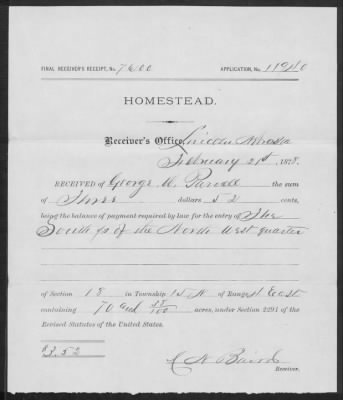 FINAL RECEIVER'S RECEIPT, No. 7600 APPLICATION, No. 11940
HOMESTEAD.
Receiver's Office, Lincoln Nebraska
February 21st, 1878.
RECEIVED of George W. Parcell the sum
of Three dollars 52 cents,
being the balance of payment required by law for the entry of The
South ½ of the North West quarter
of Section 18 in Township 15 N of Range East
containing 70 and 38/100 acres, under Section 2291 of the
Revised Statutes of the United States.
$3.52
Baird
Receiver.